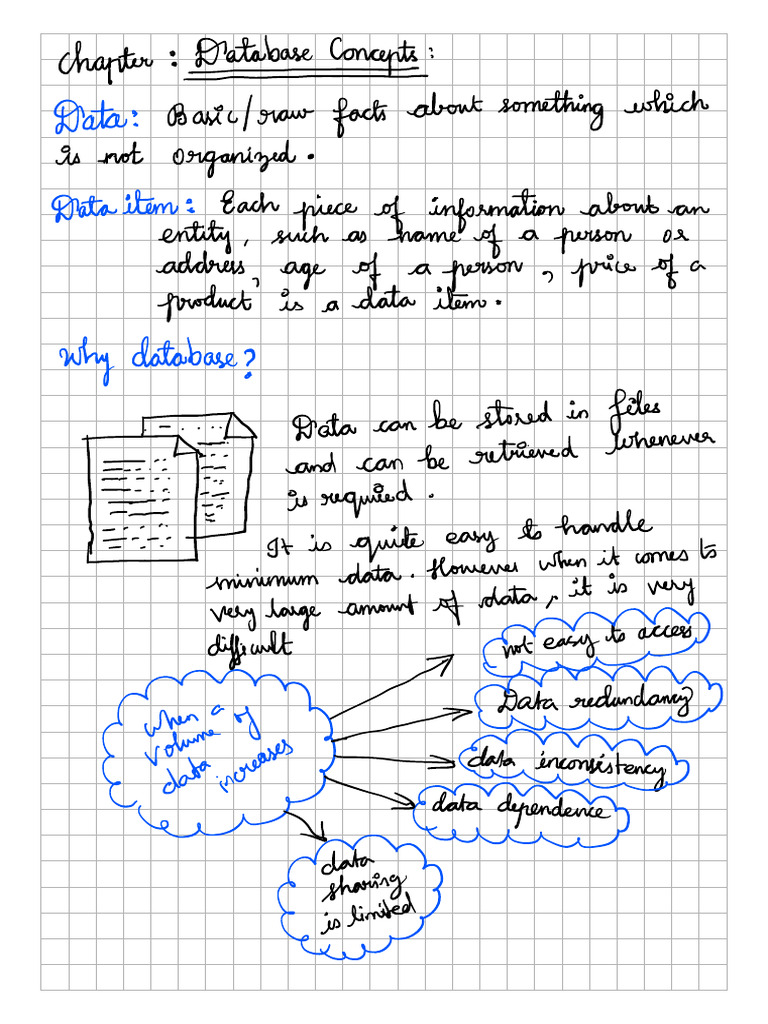 Chapter : Database Concepts :
Data: Basic/raw facts about something which
is not organized.
Data item: Each piece of information about an
entity, such as name of a person or
address, age of a person, price of a
product is a data item.
Why database?
Data can be stored in files
and can be retrieved whenever
is requied.
It is quite easy to handle
minimum data. However when it comes to
very large amount of data, it is very
difficult
when a
volume of
data
increases
not easy to access
Data redundancy
data inconsistency
data dependence
data
sharing
is limited